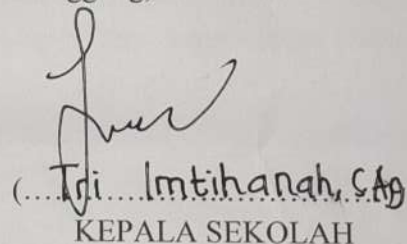 (....Tri Imtihanah, S.Ag
KEPALA SEKOLAH